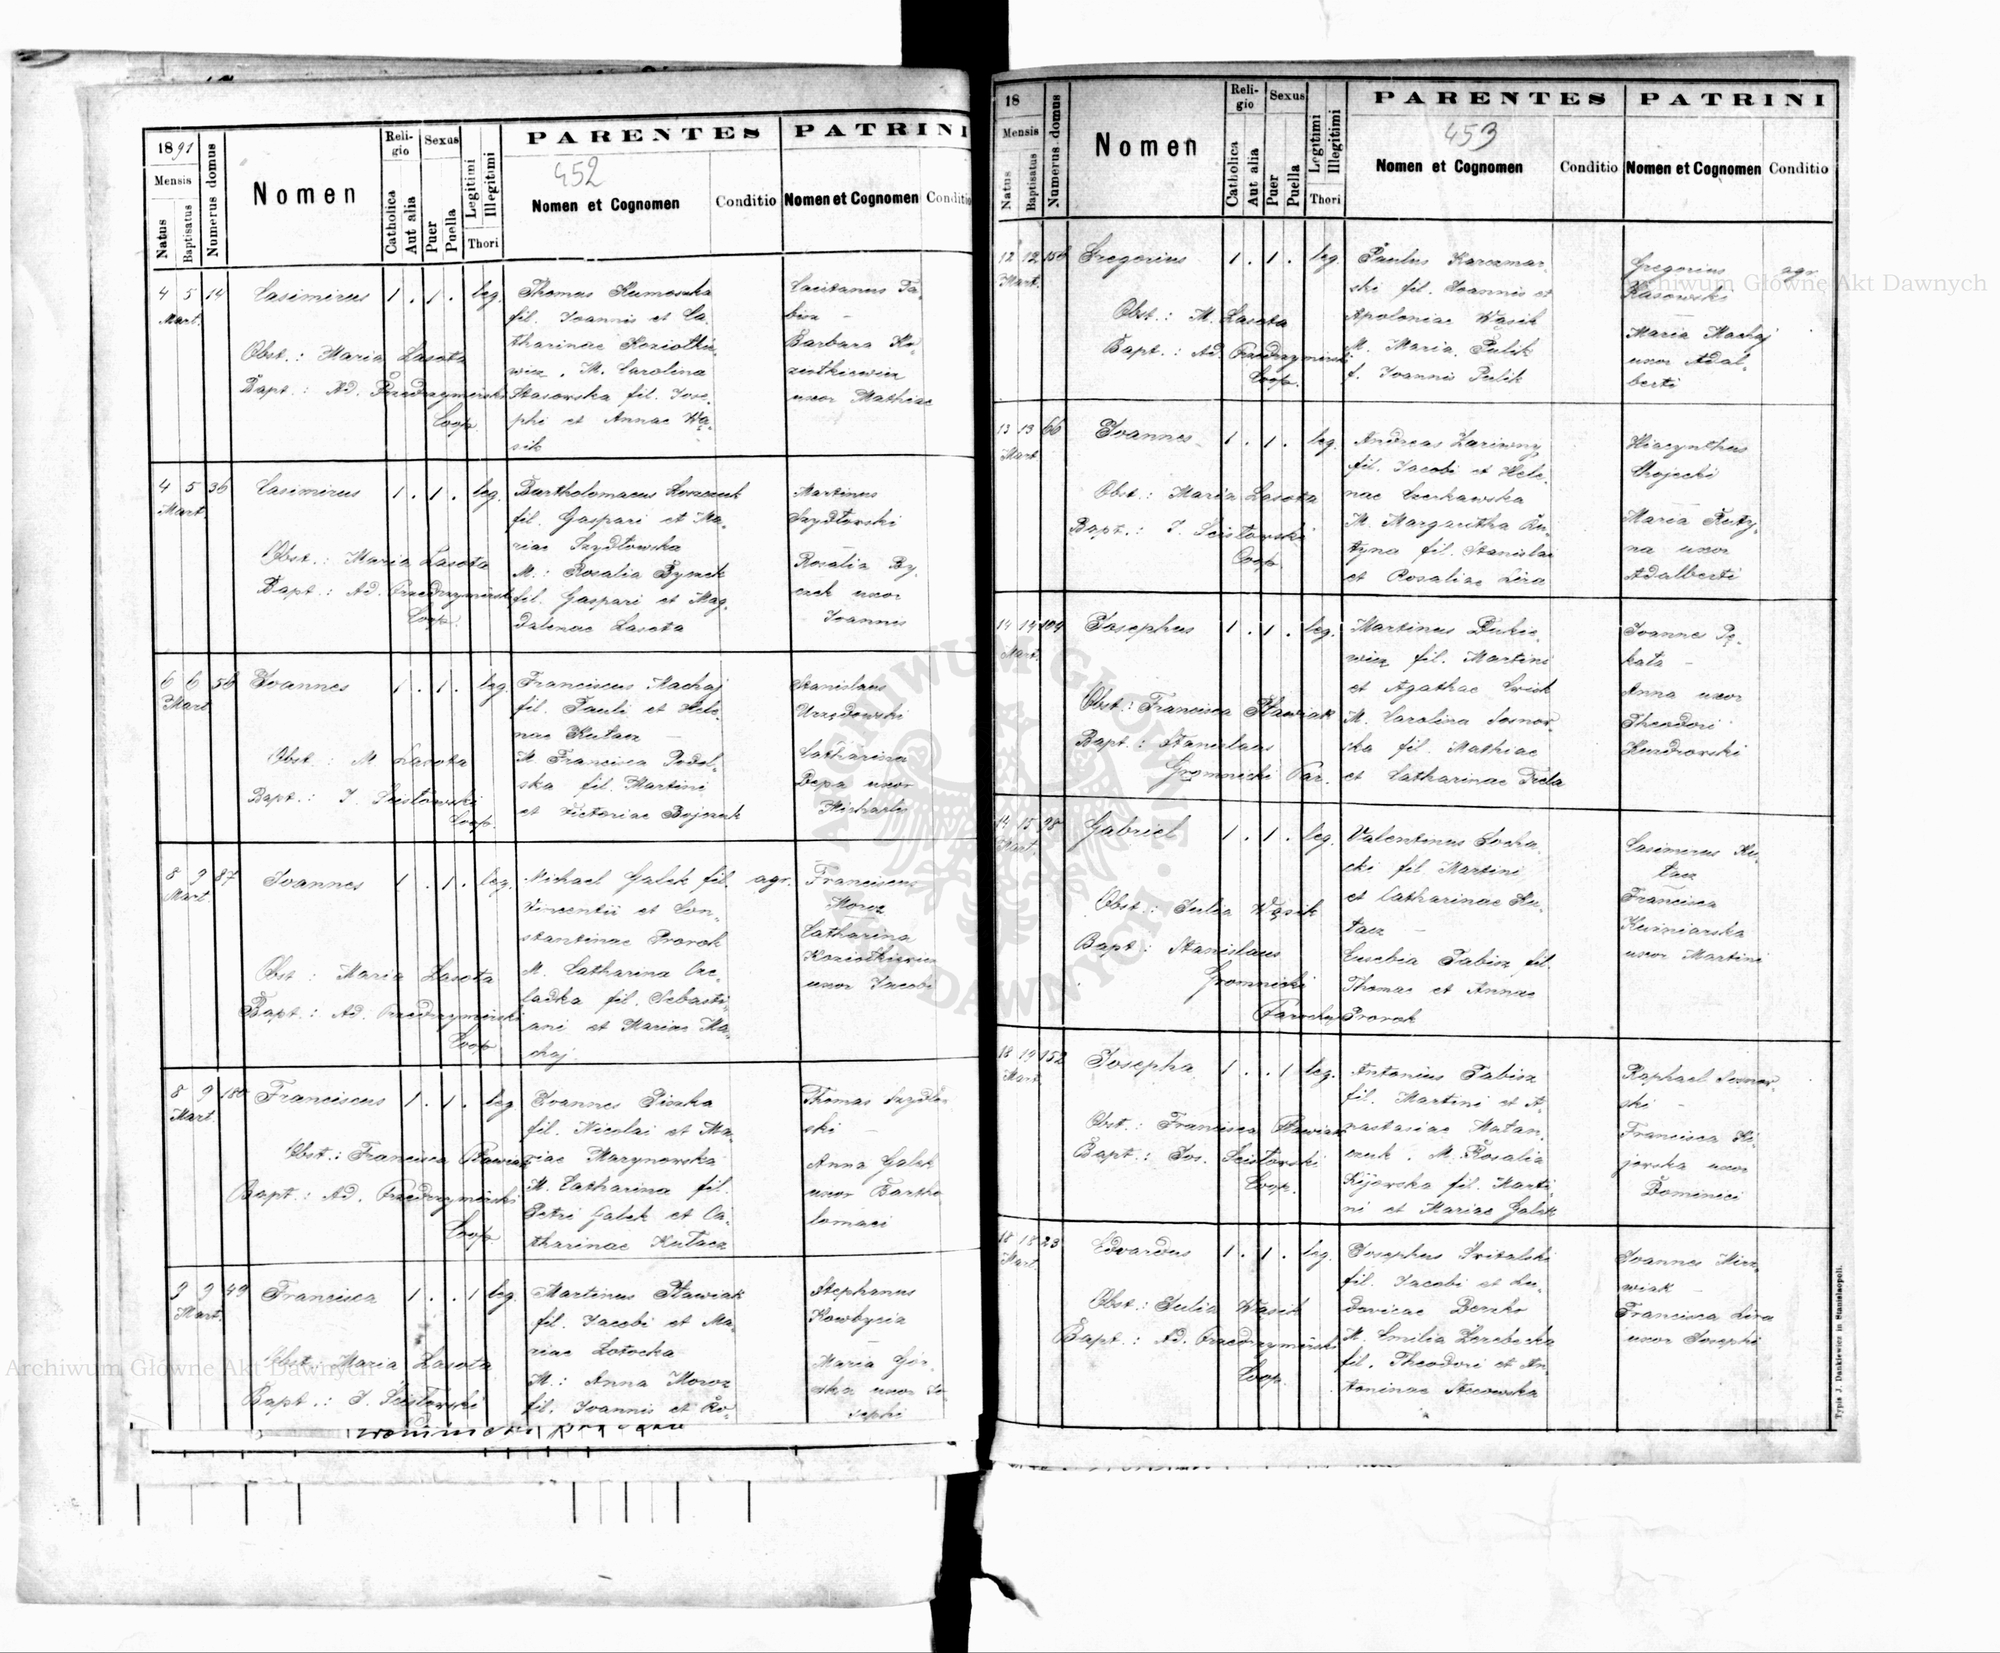 1891
Mensis
Natus
Baptisatus
Numerus domus
Nomen
Religio
Catholica
Aut alia
Sexus
Puer
Puella
Legitimi
Illegitimi
Thori
PARENTES
452
Nomen et Cognomen
Conditio
PATRINI
Nomen et Cognomen
Conditio
4 5 14 Casimirus 1 . 1 . leg.
Mart.
Obst.: Maria Lasota
Bapt.: Ad. Przedrzymirski
Coop.
fil. Joannis et Ca-
tharinae Koziołkie-
wicz. M. Carolina
Stasowska fil. Jose-
phi et Annae Wą-
sik
Barbara Ko-
uxor Mathiae
4 5 36 Casimirus 1 . 1 . leg.
Mart.
Obst.: Maria Lasota
Bapt.: Ad. Przedrzymirski
Coop.
fil. Gaspari et Ma-
riae Szydłowska
M.: Rosalia Byczek
fil. Gaspari et Mag-
dalenae Lasota
Martinus
Szydłowski
Rosalia By-
czek uxor
Joannis
6 6 56 Joannes 1 . 1 . leg.
Mart
Obst.: M Lasota
Bapt.: J. Seistowski
Coop.
Franciscus Machaj
fil. Pauli et Hele-
nae Kutacz
M. Francisca Podol-
ska fil. Martini
et Victoriae Bojczuk
Stanislaus
Urzędowski
Catharina
Depa uxor
Michaelis
8 9 87 Joannes 1 . 1 . leg.
Mart.
Obst.: Maria Lasota
Bapt.: Ad. Przedrzymirski
Coop
Michael Galek fil. agr.
Vincentii et Con-
stantinae Prorok
M. Catharina Cze-
ladka fil. Sebasti-
ani et Mariae Ma-
chaj.
Franciscus
Moroz
Catharina
Koziołkiewicz
uxor Jacobi
8 9 180 Franciscus 1 . 1 . leg
Mart.
Obst.: Francisca Pławiak
Bapt.: Ad. Przedrzymirski
Coop.
Joannes Piszka
fil. Nicolai et Ma-
riae Marynowska
M. Catharina fil.
Petri Galek et Ca-
tharinae Kutacz
Thomas Szydłow-
ski
Anna Galek
uxor Bartho
lomaei
9 9 49 Francisca 1 . . 1 leg.
Mart.
Obst.: Maria Lasota
Bapt.: J. Seistowski
Martinus Pławiak
fil. Jacobi et Ma-
riae Łotocka
M.: Anna Moroz
fil. Joannis et Ro-
Stephanus
Kowbycia
Maria Gór-
ska uxor Jo-
sephi
18
Mensis
Natus
Baptisatus
Numerus domus
Nomen
Religio
Catholica
Aut alia
Sexus
Puer
Puella
Legitimi
Illegitimi
Thori
PARENTES
453
Nomen et Cognomen
Conditio
PATRINI
Nomen et Cognomen
Conditio
12 12 156 Gregorius 1 . 1 . leg.
Mart.
Obst.: M. Lasota
Bapt.: Ad. Przedrzymirski
Coop.
Paulus Karczmar-
ski fil. Joannis et
Apoloniae Wąsik
M. Maria Pulik
f. Joannis Pulik
Gregorius agr.
Maria Machaj
uxor Adal-
berti
13 13 66 Joannes 1 . 1 . leg.
Mart
Obst.: Maria Lasota
Bapt.: J. Seistowski
Coop.
Andreas Zariwny
fil. Jacobi et Hele-
nae Czerkawska
M. Margaritha Ru-
tyna fil. Stanislai
et Rosaliae Lira
Hiacynthus
Chojecki
Maria Ruty-
na uxor
Adalberti
14 14 104 Josephus 1 . 1 . leg.
Mart.
Obst.: Francisca Pławiak
Bapt.: Stanislaus
Gromnicki Par.
Martinus Dukie-
wicz fil. Martini
et Agathae
M. Carolina Sosnow-
ska fil. Mathiae
et Catharinae Trela
Joannes Pę-
kata
Anna uxor
Theodori
14 15 98 Gabriel 1 . 1 . leg.
Mart.
Obst.: Julia Wąsik
Bapt.: Stanislaus
Gromnicki
Parochus
Valentinus Socha-
cki fil Martini
et Catharinae Ku-
tacz
Eusebia Fabisz fil.
Thomae et Annae
Prorok
Casimirus Ku-
tacz
Francisca
Kuśniarska
uxor Martini
18 19 152 Josepha 1 . . 1 leg.
Mart.
Obst.: Francisca Pławiak
Bapt.: Jos. Seistowski
Coop.
Antonius Fabisz
fil. Martini et A-
nastasiae Matan-
czuk. M. Rosalia
Kijowska fil. Marti-
ni et Mariae Galek
Raphael Sosnow-
ski
Francisca Ki-
jowska uxor
Dominici
18 18 23 Edvardus 1 . 1 . leg.
Mart.
Obst.: Julia Wąsik
Bapt.: Ad. Przedrzymirski
Coop.
Josephus Switalski
fil. Jacobi et Lu-
dovicae
M. Emilia Zerebecka
fil. Theodori et An-
toninae
Joannes Mirz-
wiak
Francisca Lira
uxor Josephi
Typis J. Dankiewicz in Stanislaopoli.
Archiwum Główne Akt Dawnych
Archiwum Główne Akt Dawnych
ARCHIWUM GŁÓWNE AKT DAWNYCH